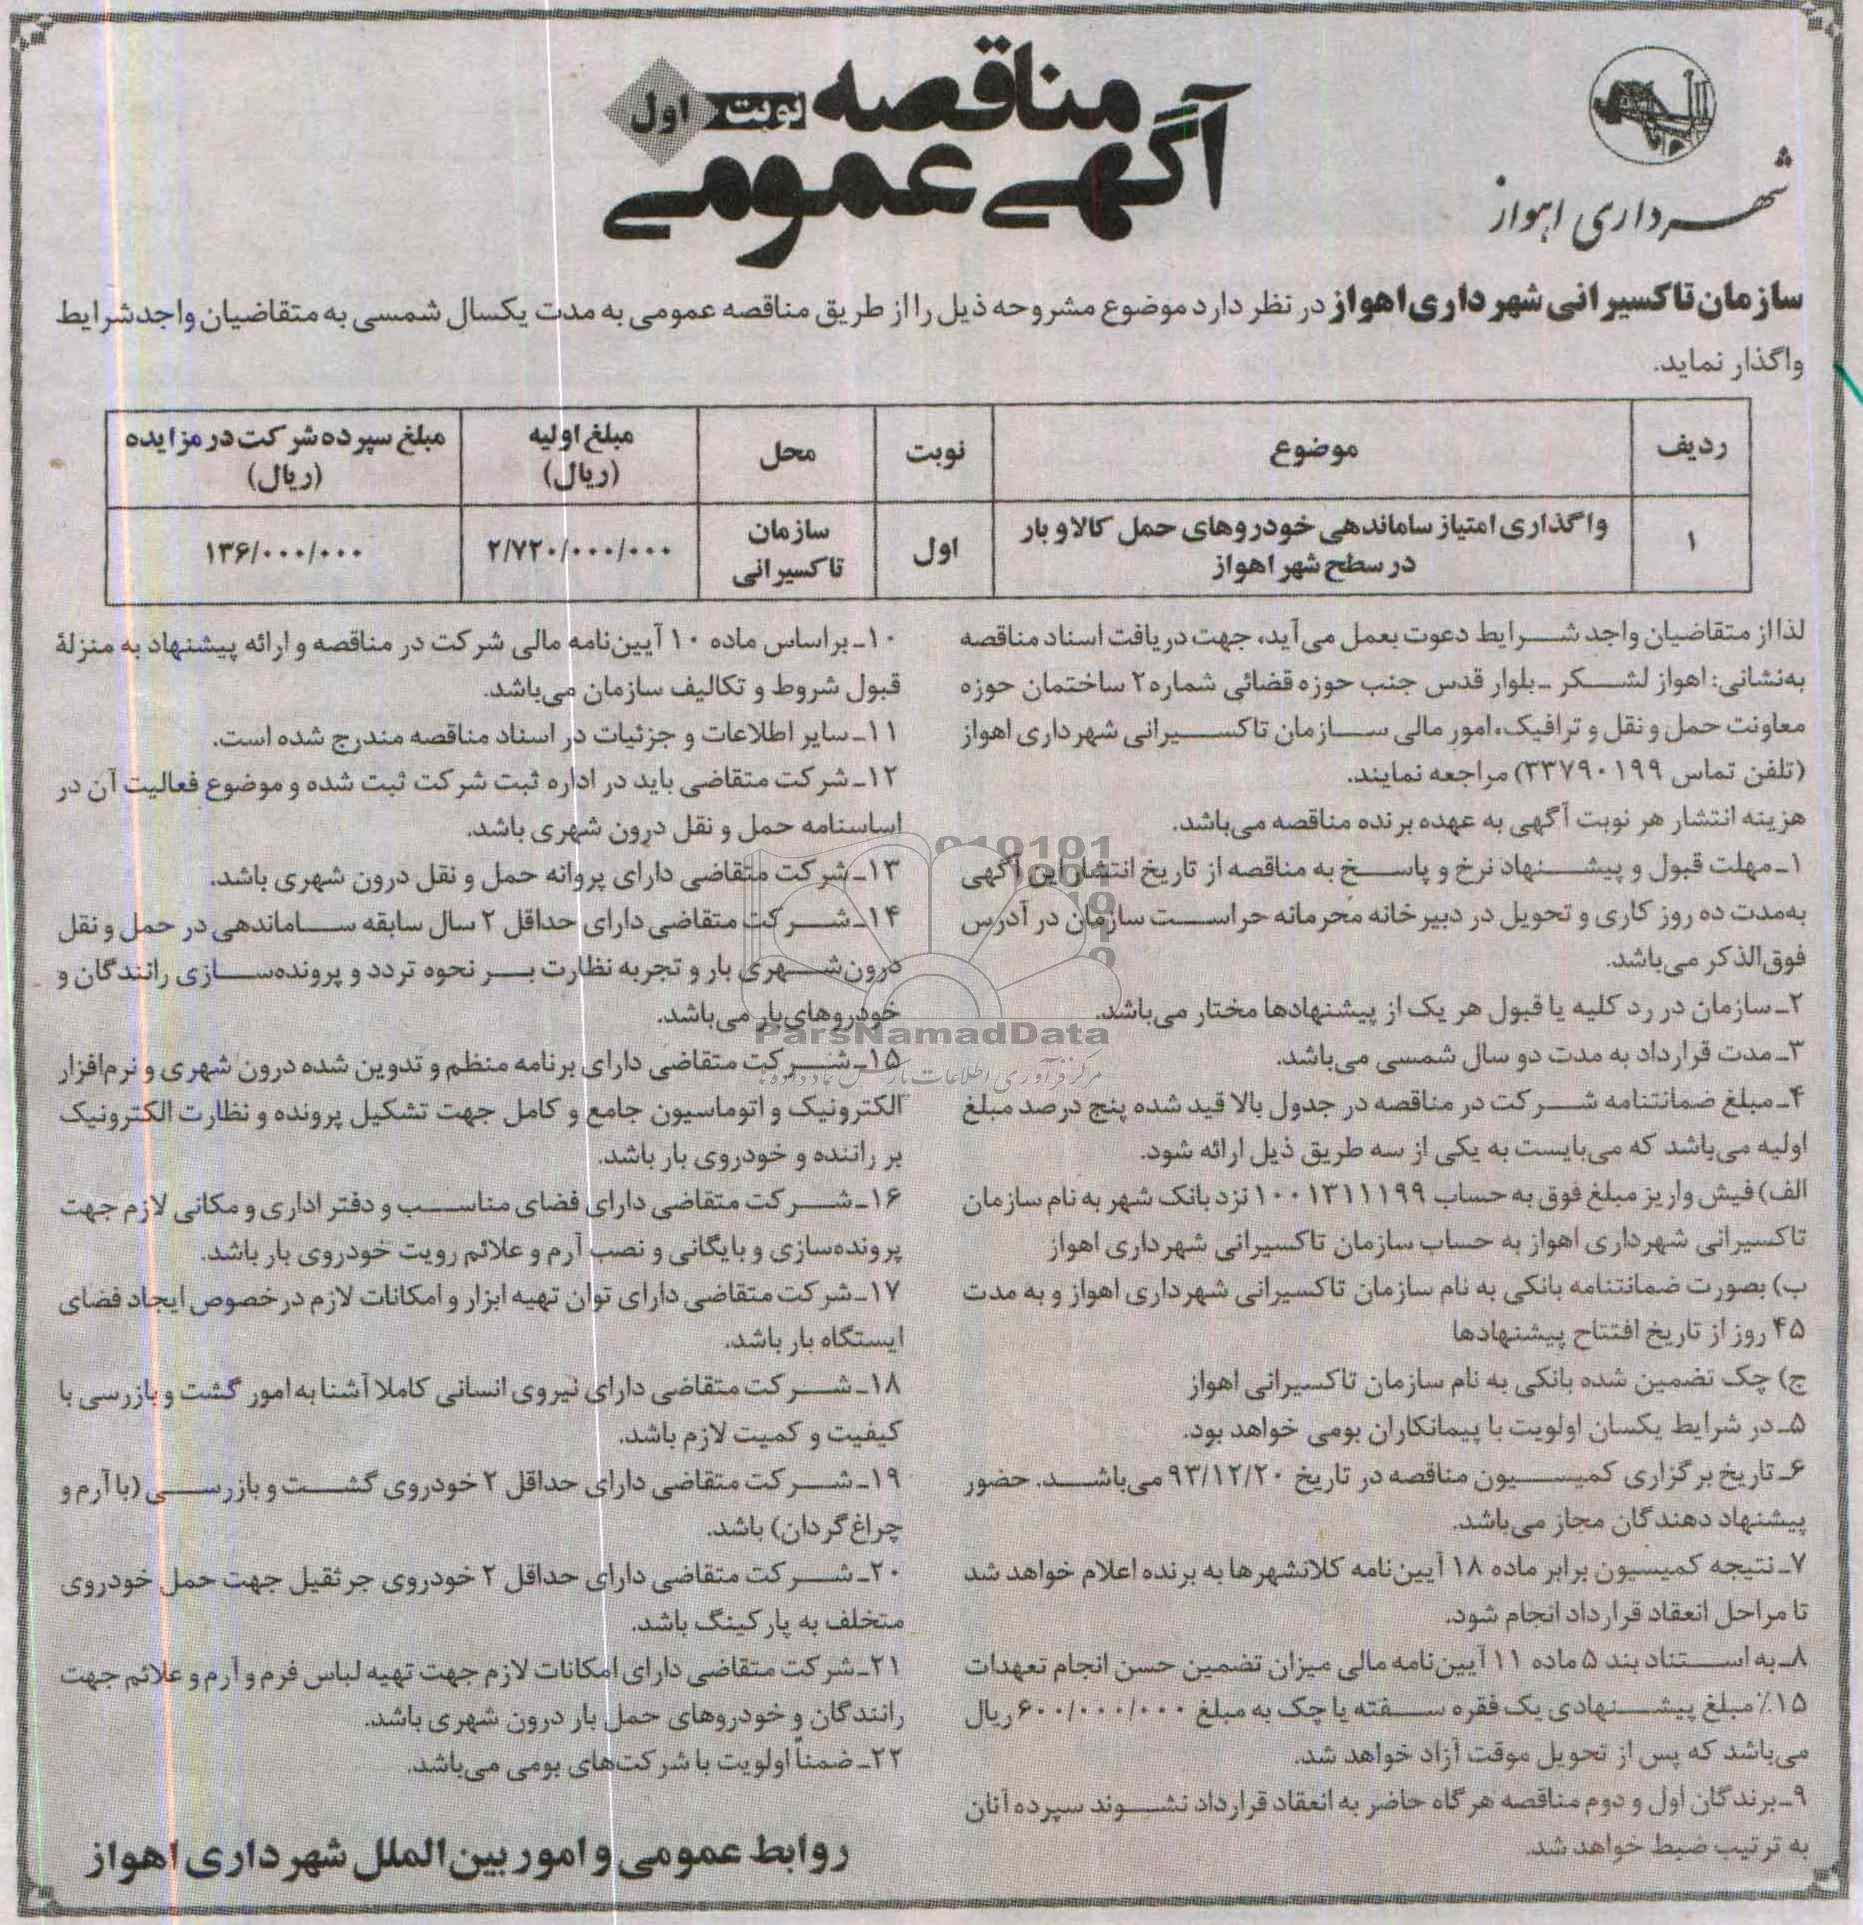 شهرداری اهواز
آگهی مناقصه عمومی
نوبت اول
سازمان تاکسیرانی شهرداری اهواز در نظر دارد موضوع مشروحه ذیل را از طریق مناقصه عمومی به مدت یکسال شمسی به متقاضیان واجد شرایط
واگذار نماید.
ردیف موضوع نوبت محل مبلغ اولیه (ریال) مبلغ سپرده شرکت در مزایده (ریال)
۱ واگذاری امتیاز ساماندهی خودروهای حمل کالا و بار در سطح شهر اهواز اول سازمان تاکسیرانی ۲/۷۲۰/۰۰۰/۰۰۰ ۱۳۶/۰۰۰/۰۰۰
لذا از متقاضیان واجد شرایط دعوت بعمل می‌آید، جهت دریافت اسناد مناقصه
به‌نشانی: اهواز لشکر ـ بلوار قدس جنب حوزه قضائی شماره۲ ساختمان حوزه
معاونت حمل و نقل و ترافیک، امور مالی سازمان تاکسیرانی شهرداری اهواز
(تلفن تماس ۳۳۷۹۰۱۹۹) مراجعه نمایند.
هزینه انتشار هر نوبت آگهی به عهده برنده مناقصه می‌باشد.
۱ـ مهلت قبول و پیشنهاد نرخ و پاسخ به مناقصه از تاریخ انتشار این آگهی
به‌مدت ده روز کاری و تحویل در دبیرخانه محرمانه حراست سازمان در آدرس
فوق‌الذکر می‌باشد.
۲ـ سازمان در رد کلیه یا قبول هر یک از پیشنهادها مختار می‌باشد.
۳ـ مدت قرارداد به مدت دو سال شمسی می‌باشد.
۴ـ مبلغ ضمانتنامه شرکت در مناقصه در جدول بالا قید شده پنج درصد مبلغ
اولیه می‌باشد که می‌بایست به یکی از سه طریق ذیل ارائه شود.
الف) فیش واریز مبلغ فوق به حساب ۱۰۰۱۳۱۱۱۹۹ نزد بانک شهر به نام سازمان
تاکسیرانی شهرداری اهواز به حساب سازمان تاکسیرانی شهرداری اهواز
ب) بصورت ضمانتنامه بانکی به نام سازمان تاکسیرانی شهرداری اهواز و به مدت
۴۵ روز از تاریخ افتتاح پیشنهادها
ج) چک تضمین شده بانکی به نام سازمان تاکسیرانی اهواز
۵ـ در شرایط یکسان اولویت با پیمانکاران بومی خواهد بود.
۶ـ تاریخ برگزاری کمیسیون مناقصه در تاریخ ۹۳/۱۲/۲۰ می‌باشد. حضور
پیشنهاد دهندگان مجاز می‌باشد.
۷ـ نتیجه کمیسیون برابر ماده ۱۸ آیین‌نامه کلانشهرها به برنده اعلام خواهد شد
تا مراحل انعقاد قرارداد انجام شود.
۸ـ به استناد بند ۵ ماده ۱۱ آیین‌نامه مالی میزان تضمین حسن انجام تعهدات
۱۵٪ مبلغ پیشنهادی یک فقره سفته یا چک به مبلغ ۶۰۰/۰۰۰/۰۰۰ ریال
می‌باشد که پس از تحویل موقت آزاد خواهد شد.
۹ـ برندگان اول و دوم مناقصه هرگاه حاضر به انعقاد قرارداد نشوند سپرده آنان
به ترتیب ضبط خواهد شد.
۱۰ـ براساس ماده ۱۰ آیین‌نامه مالی شرکت در مناقصه و ارائه پیشنهاد به منزلهٔ
قبول شروط و تکالیف سازمان می‌باشد.
۱۱ـ سایر اطلاعات و جزئیات در اسناد مناقصه مندرج شده است.
۱۲ـ شرکت متقاضی باید در اداره ثبت شرکت ثبت شده و موضوع فعالیت آن در
اساسنامه حمل و نقل درون شهری باشد.
۱۳ـ شرکت متقاضی دارای پروانه حمل و نقل درون شهری باشد.
۱۴ـ شرکت متقاضی دارای حداقل ۲ سال سابقه ساماندهی در حمل و نقل
درون‌شهری بار و تجربه نظارت بر نحوه تردد و پرونده‌سازی رانندگان و
خودروهای بار می‌باشد.
۱۵ـ شرکت متقاضی دارای برنامه منظم و تدوین شده درون شهری و نرم‌افزار
الکترونیک و اتوماسیون جامع و کامل جهت تشکیل پرونده و نظارت الکترونیک
بر راننده و خودروی بار باشد.
۱۶ـ شرکت متقاضی دارای فضای مناسب و دفتر اداری و مکانی لازم جهت
پرونده‌سازی و بایگانی و نصب آرم و علائم رویت خودروی بار باشد.
۱۷ـ شرکت متقاضی دارای توان تهیه ابزار و امکانات لازم درخصوص ایجاد فضای
ایستگاه بار باشد.
۱۸ـ شرکت متقاضی دارای نیروی انسانی کاملا آشنا به امور گشت و بازرسی با
کیفیت و کمیت لازم باشد.
۱۹ـ شرکت متقاضی دارای حداقل ۲ خودروی گشت و بازرسی (با آرم و
چراغ گردان) باشد.
۲۰ـ شرکت متقاضی دارای حداقل ۲ خودروی جرثقیل جهت حمل خودروی
متخلف به پارکینگ باشد.
۲۱ـ شرکت متقاضی دارای امکانات لازم جهت تهیه لباس فرم و آرم و علائم جهت
رانندگان و خودروهای حمل بار درون شهری باشد.
۲۲ـ ضمناً اولویت با شرکت‌های بومی می‌باشد.
روابط عمومی و امور بین‌الملل شهرداری اهواز
ParsNamadData
مرکز فرآوری اطلاعات پارس نماد داده ها